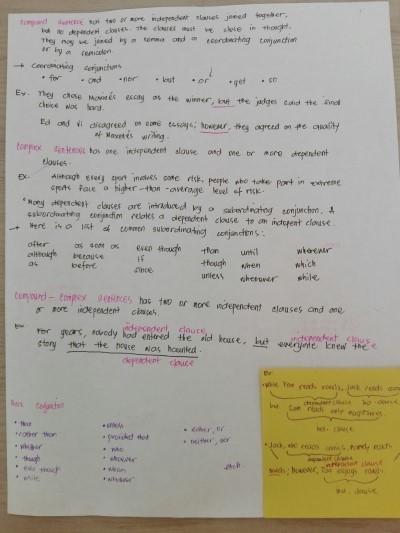 compound sentence has two or more independent clauses joined together,
but no dependent clauses. The clauses must be close in thought.
They may be joined by a comma and a coordinating conjunction
or by a semicolon.
→ Coordinating conjunctions
• for • and • nor • but • or • yet • so
Ex. They chose Maxine's essay as the winner, but the judges said the final
choice was hard.
Ed and Vi disagreed on some essays; however, they agreed on the quality
of Maxine's writing.
Complex sentences has one independent clause and one or more dependent
clauses.
Ex: Although every sport involves some risk, people who take part in extreme
sports face a higher-than-average level of risk.
*Many dependent clauses are introduced by a subordinating conjunction. A
subordinating conjunction relates a dependent clause to an indepent clause.
→ Here is a list of common subordinating conjunctions:
after as soon as even though than until wherever
although because if though when which
as before since unless whenever while
compound-complex sentences has two or more independent clauses and one
or more independent clauses.
independent clause independent clause
For years, nobody had entered the old house, but everyone knew the
story that the house was haunted.
dependent clause
More conjunction
• that • unless • either, or
• rather than • provided that • neither, nor
• whether • who
• though • whoever
• even though • whom
• while • whoever
Ex:
• While Tom reads novels, Jack reads comics
dependent clause
but Sam reads only magazines.
ind. clause
• Jack, who reads comics, rarely reads
dependent clause
novels; however, Tom enjoys novels.
ind. clause